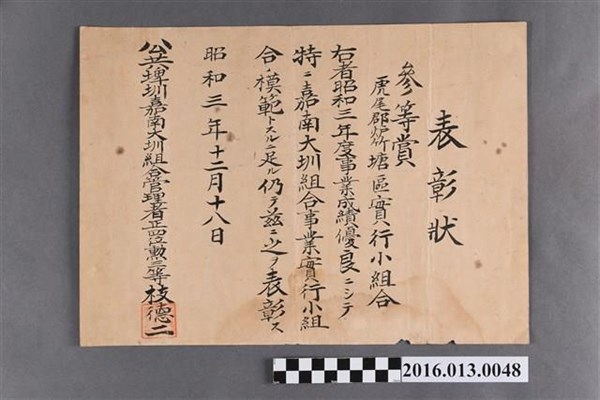 表彰狀
參等賞
虎尾郡竹塘區實行小組合
右者昭和三年度事業成績優良ニシテ
特ニ嘉南大圳組合事業實行小組
合ノ模範トスルニ足ル仍テ茲ニ之ヲ表彰ス
昭和三年十二月十八日
公共埤圳嘉南大圳組合管理者正四位勲三等枝德二
2016.013.0048